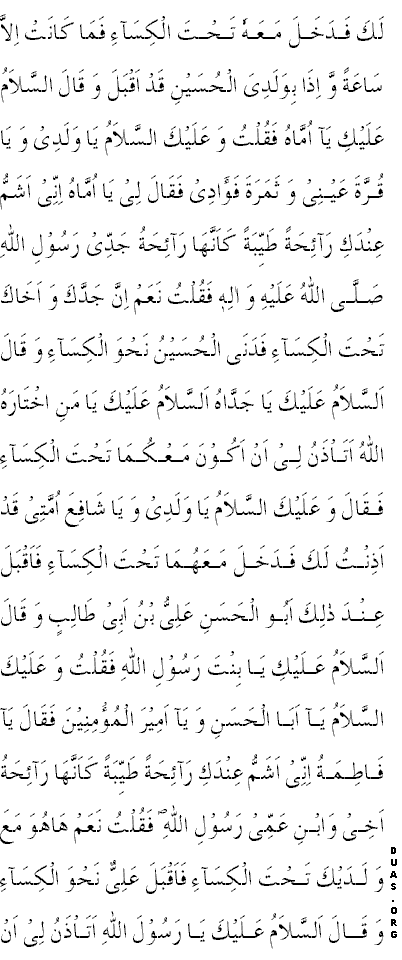 لَكَ فَـدَخَــلَ مَـعَـهٗ تَـحْـتَ الْكِسَآءِ فَمَا كَانَتْ اِلاَّ
سَاعَةً وَّ اِذَا بِوَلَدِىَ الْحُسَيْنِ قَدْ اَقْبَلَ وَ قَالَ السَّلاَمُ
عَلَيْكِ يَآ اُمَّاهُ فَقُلْتُ وَ عَلَيْكَ السَّلاَمُ يَا وَلَدِىْ وَ يَا
قُـرَّةَ عَيْـنِىْ وَ ثَمَرَةَ فَؤَادِىْ فَقَالَ لِىْ يَا اُمَّاهُ اِنِّىْ اَشَمُّ
عِنْدَكِ رَآئِحَةً طَيِّبَةً كَاَنَّهَا رَآئِحَةُ جَدِّىْ رَسُوْلِ اللهِ
صَـلَّـى اللهُ عَلَيْهِ وَ الِهٖ فَقُلْتُ نَعَمْ اِنَّ جَدَّكَ وَ اَخَاكَ
تَحْتَ الْكِسَآءِ فَدَنَى الْحُسَيْنُ نَحْوَ الْكِسَآءِ وَ قَالَ
اَلسَّلاَمُ عَلَيْكَ يَا جَدَّاهُ اَلسَّلاَمُ عَلَيْكَ يَا مَنِ اخْتَارَهُ
اللهُ اَتَـاْذَنُ لِـىْ اَنْ اَكُـوْنَ مَـعْـكُـمَا تَحْتَ الْكِسَآءِ
فَـقَالَ وَ عَلَيْكَ السَّلاَمُ يَا وَلَدِىْ وَ يَا شَافِعَ اُمَّتِىْ قَدْ
اَذِنْـتُ لَكَ فَـدَخَـلَ مَـعَـهُـمَا تَحْتَ الْكِسَآءِ فَاَقْبَلَ
عِـنْـدَ ذٰلِكَ اَبُـو الْحَسَنِ عَلِىُّ بْنُ اَبِىْ طَالِبٍ وَ قَالَ
اَلسَّلاَمُ عَـلَيْكِ يَـا بِنْتَ رَسُوْلِ اللهِ فَقُلْتُ وَ عَلَيْكَ
السَّلاَمُ يَـآ اَبَـا الْحَسَنِ وَ يَآ اَمِيْرَ الْمُؤْمِنِيْنَ فَقَالَ يَآ
فَـاطِـمَـةُ اِنِّىْ اَشَمُّ عِنْدَكِ رَآئِحَةً طَيِّبَةً كَاَنَّهَا رَآئِحَةُ
اَخِـىْ وَابْـنِ عَمِّىْ رَسُوْلِ اللهِ ۖ فَقُلْتُ نَعَمْ هَاهُوَ مَعَ
وَ لَـدَيْكَ تَـحْتَ الْكِسَآءِ فَاَقْبَلَ عَلِىٌّ نَحْوَ الْكِسَآءِ
وَ قَــالَ اَلسَّلاَمُ عَـلَيْكَ يَـا رَسُوْلَ اللهِ اَتَـاْذَنُ لِىْ اَنْ
DUAS.ORG